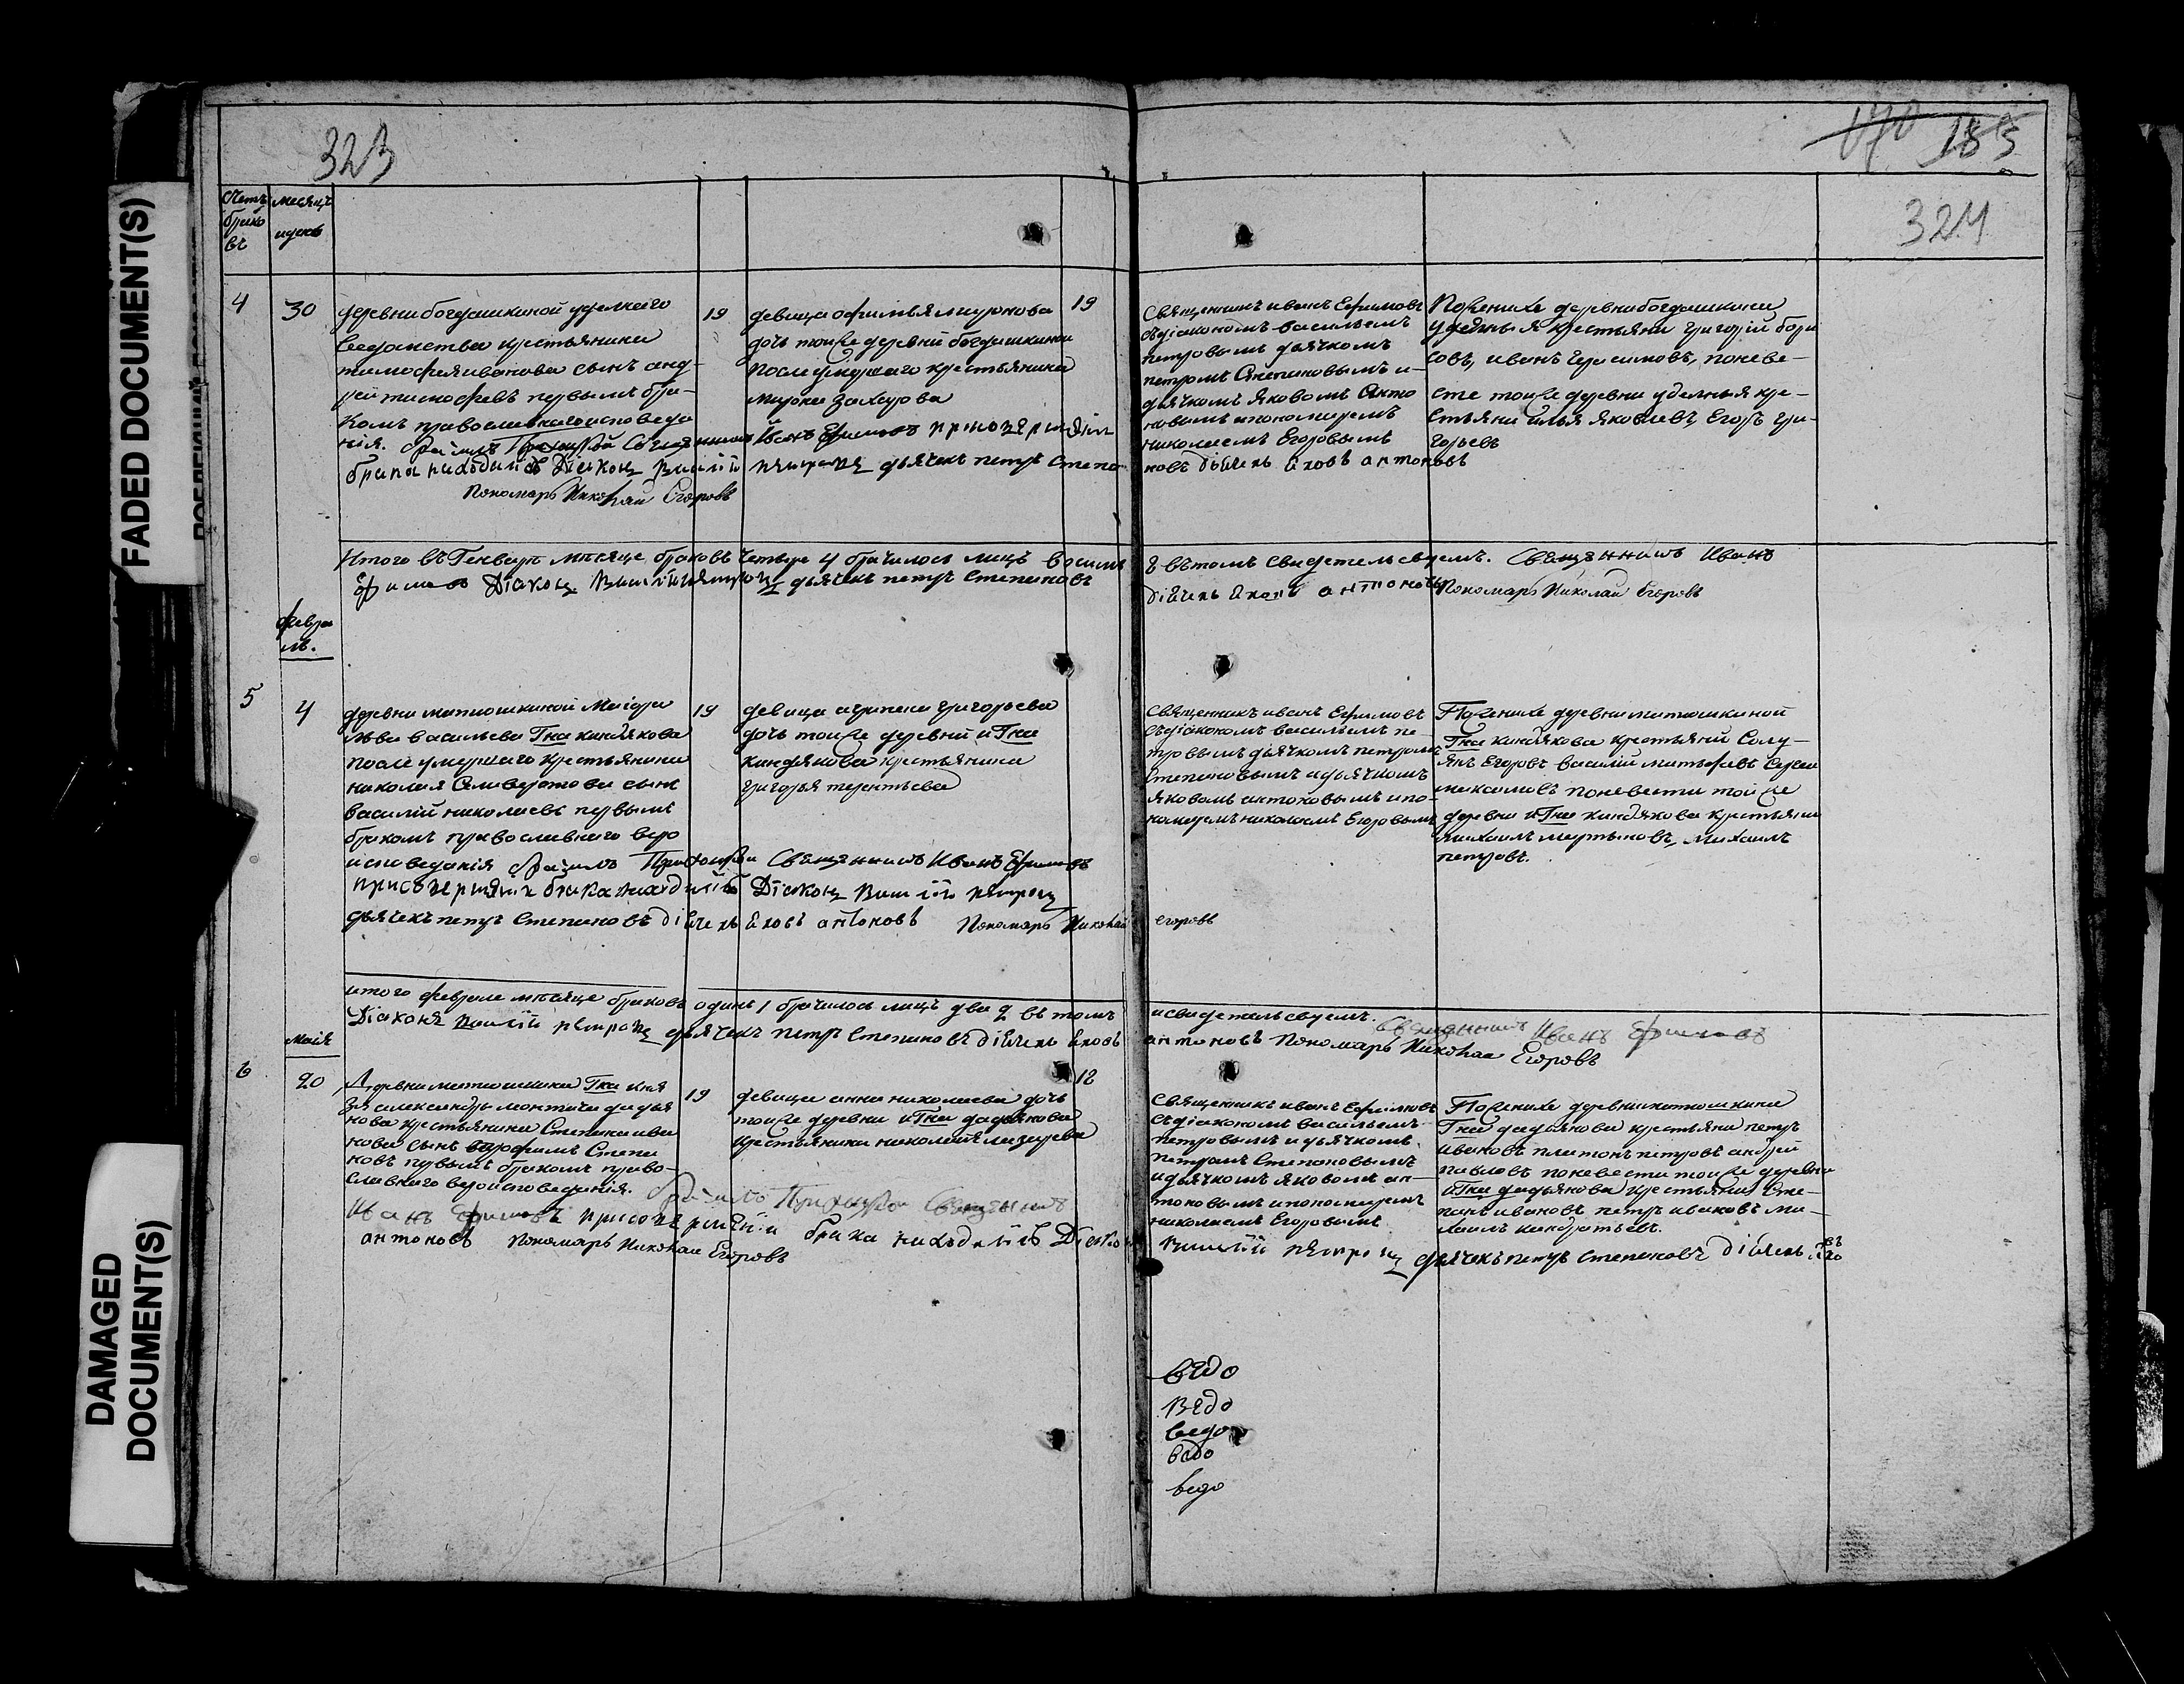 323
170 185
324
Счетъ
брако
въ
месяцъ
и день
4
30
деревни богдашкиной уделнаго
ведомства крестьянина
тимофея иванова сынъ анд-
рей тимофеевъ первымъ бра-
комъ православнаго исповеда
нія.
19
девица офимья миронова
дочь тойже деревни богдашкиной
после умершаго крестьянина
мирона захарова
19
Священникъ иванъ Ефимовъ
съ діакономъ васильемъ
петровымъ дьячкомъ
петромъ Степановымъ и
дьячкомъ яковомъ Анто
новымъ и пономаремъ
николаемъ Егоровымъ
По женихе деревни богдашкиной
удельныя крестьяни григорій бори
совъ, иванъ герасимовъ, поневе-
сте тойже деревни уделныя кре-
стьяни илья яковлевъ, Егоръ гри-
горьевъ
Священникъ Иванъ Ефимовъ при
брака находился Діаконъ Василій петровъ дьячекъ петръ Степа
новъ дьячекъ яковъ антоновъ
Пономарь Николай Егоровъ
Итого въ Генваре месяце браковъ четыре 4 брачилось лицъ восемь
8 въ томъ свидетельствуемъ. Священникъ Иванъ
Ефимовъ Діаконъ Василій петровъ дьячекъ петръ Степановъ
дьячекъ яковъ антоновъ Пономарь Николай Егоровъ
февра
ль.
5
4
деревни матюшкиной Маіора
льва васильева Гна киндякова
после умершаго крестьянина
николая Селиверстова сынъ
василий николаевъ первымъ
бракомъ православнаго веро
исповеданія
19
девица агрипена григорьева
дочь тойже деревни и Гна
киндякова крестьянина
григорья терентьева
Священникъ иванъ Ефимовъ
съ діакономъ васильемъ пе-
тровымъ дьячкомъ петромъ
Степановымъ и дьячкомъ
яковомъ антоновымъ и по-
номаремъ николаемъ Егоровымъ
По женихе деревни матюшкиной
Гна киндякова крестьяни
Егоровъ василий матвеевъ
максимовъ поневести тойже
деревни и Гна киндякова крестьяни
михаилъ мартыновъ, михаилъ
петровъ.
Священникъ Иванъ Ефимовъ
при совершении брака находился Діаконъ Василій петровъ
дьячекъ петръ Степановъ дьячекъ яковъ антоновъ Пономарь Николай Егоровъ
итого феврале месяце браковъ одинъ 1 брачилось лицъ два 2 въ томъ
и свидетельсвуемъ. Священникъ Иванъ Ефимовъ
Діаконъ Василій петровъ дьячекъ петръ Степановъ дьячекъ яковъ
антоновъ Пономарь Николай Егоровъ
маія
6
20
Деревни матюшкина Гна княя
зя александра дадья
нова крестьянина Степана ива
нова сынъ трофимъ Степа
новъ первымъ бракомъ право-
славнаго вероисповеданія.
19
девица анна николаева дочь
тойже деревни и Гна дадьянова
крестьянина николая лазарева
18
Священникъ иванъ Ефимовъ
съ діакономъ васильемъ
петровымъ и дьячкомъ
петромъ Степановымъ
и дьячкомъ яковомъ ан-
тоновымъ и пономаремъ
николаемъ Егоровымъ
По женихе деревни матюшкина
Гна дадьянова крестьяни петръ
ивановъ платонъ петровъ андрей
павловъ поневести тойже деревни
и Гна дадьянова крестьяни Сте-
панъ ивановъ петръ ивановъ ми-
хаилъ кандратьевъ.
Священникъ
Иванъ Ефимовъ при совершении брака находился Діаконъ
Василій петровъ дьячекъ петръ Степановъ дьячекъ яковъ
антоновъ Пономарь Николай Егоровъ
ведо
ведо
ведо
ведо
ведо
FADED DOCUMENT(S)
DAMAGED
DOCUMENT(S)